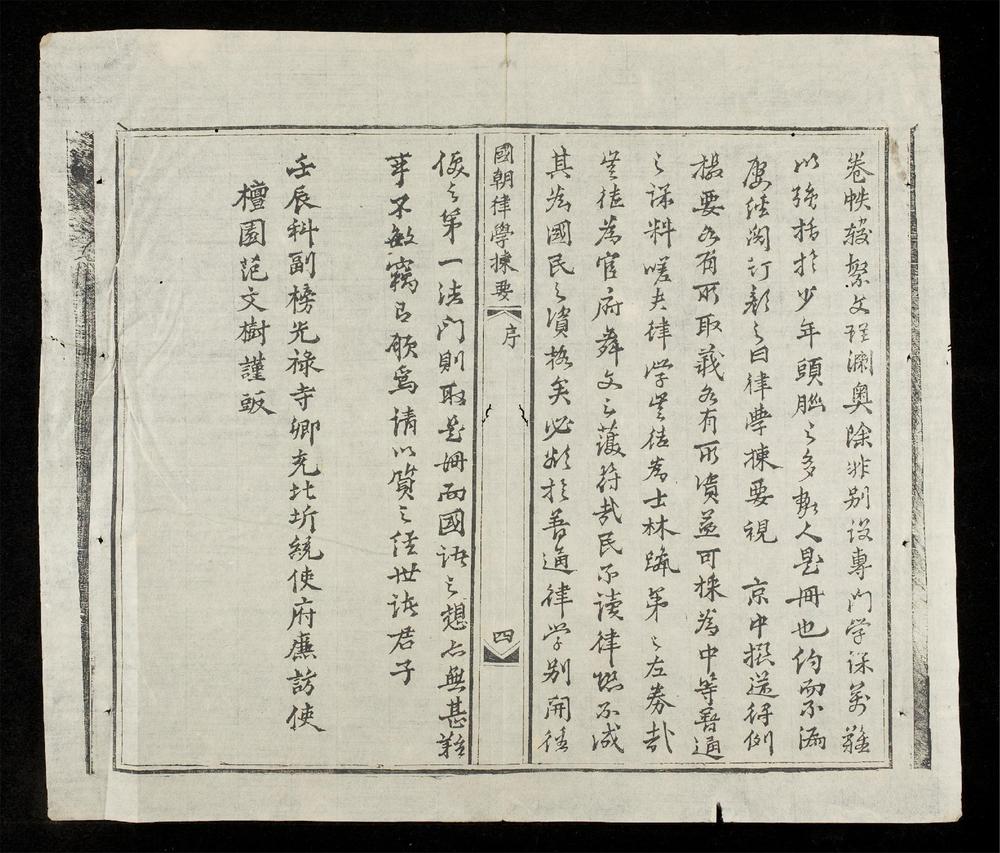 卷帙較繁文理淵奧除非别設專門学課萬難
以強括於少年頭腦之多数人是冊也約而不漏
屡経閲訂顔之曰律學揀要視 京中撰送律例
撮要各有所取義各有所資並可採為中等普通
之課料嗟夫律学豈徒為士林蹄第之左券哉
豈徒為官府舞文之護符哉民不讀律隐不減
其為國民之資格矣必欲於普通律学别開徑
國朝律學揀要
序
四
便之第一法门則取是冊而國語之想亦無甚難
事不敏竊有願焉請以質之経世諸君子
壬辰科副榜光祿寺卿充北圻統使府廉訪使
檀園范文樹謹跋